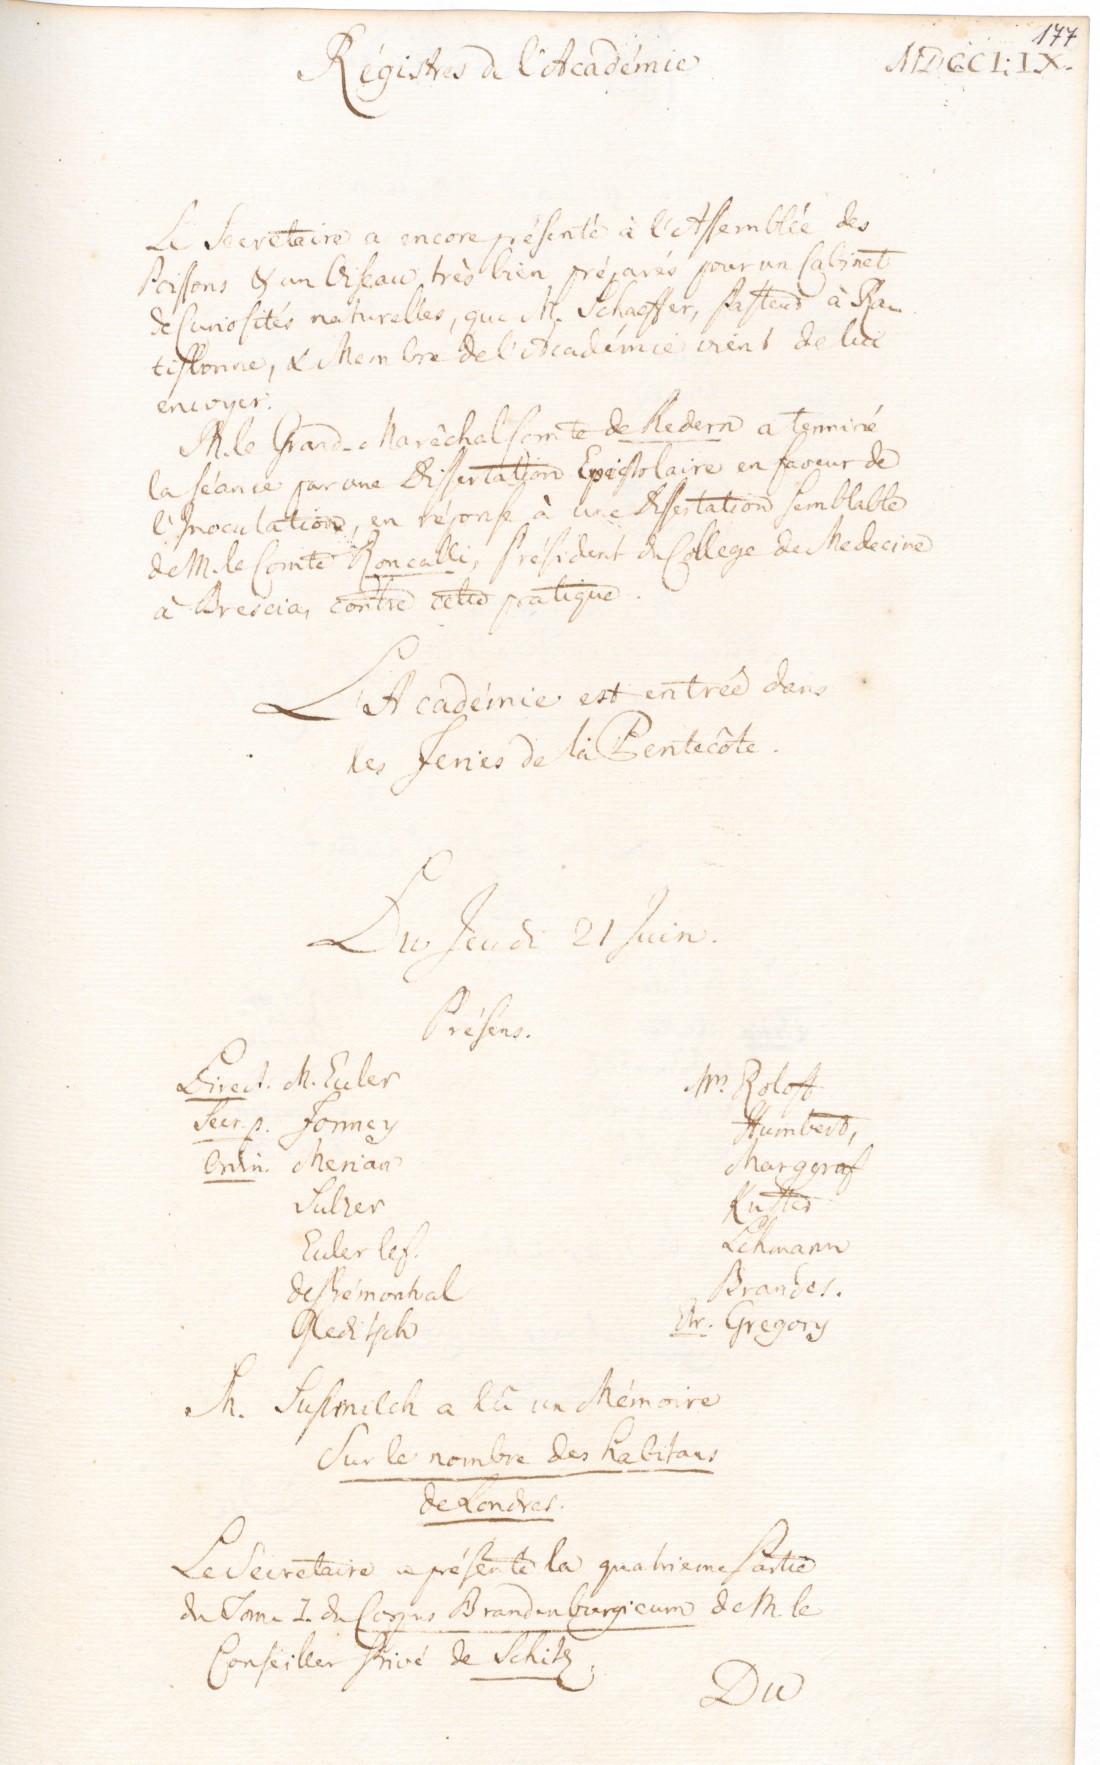 177
Régistres de l'Académie
MDCCLIX.
Le Secretaire a encore présenté à l'Assemblée des
Poissons & un Oiseau très bien préparés pour un Cabinet
de Curiosités naturelles, que M. Schaeffer, Pasteur à Ra-
tisbonne, & Membre de l'Académie vient de lui
envoyer.
M. le Grand-Maréchal Comte de Redern a terminé
la séance par une Dissertation Epistolaire en faveur de
l'Inoculation, en réponse à une Dissertation semblable
de M. le Comte Roncalli, Président du College de Medecine
à Brescia, contre cette pratique.
L'Académie est entrée dans
les Feries de la Pentecôte.
Du Jeudi 21 Juin.
Présens.
Direct. M. Euler
Secr. p. Formey
Ordin. Merian
Sulzer
Euler le f.
de Prémontval
Gleditsch
Mrs Roloff
Humbert,
Marggraf
Küster
Lehmann
Brandes.
Etr. Gregory
M. Susmilch a lû un Mémoire
Sur le nombre des habitans
de Londres.
Le Secretaire a présenté la quatrieme Partie
du Tome I. du Corpus Brandenburgicum de M. le
Conseiller Privé de Schitz.
Du